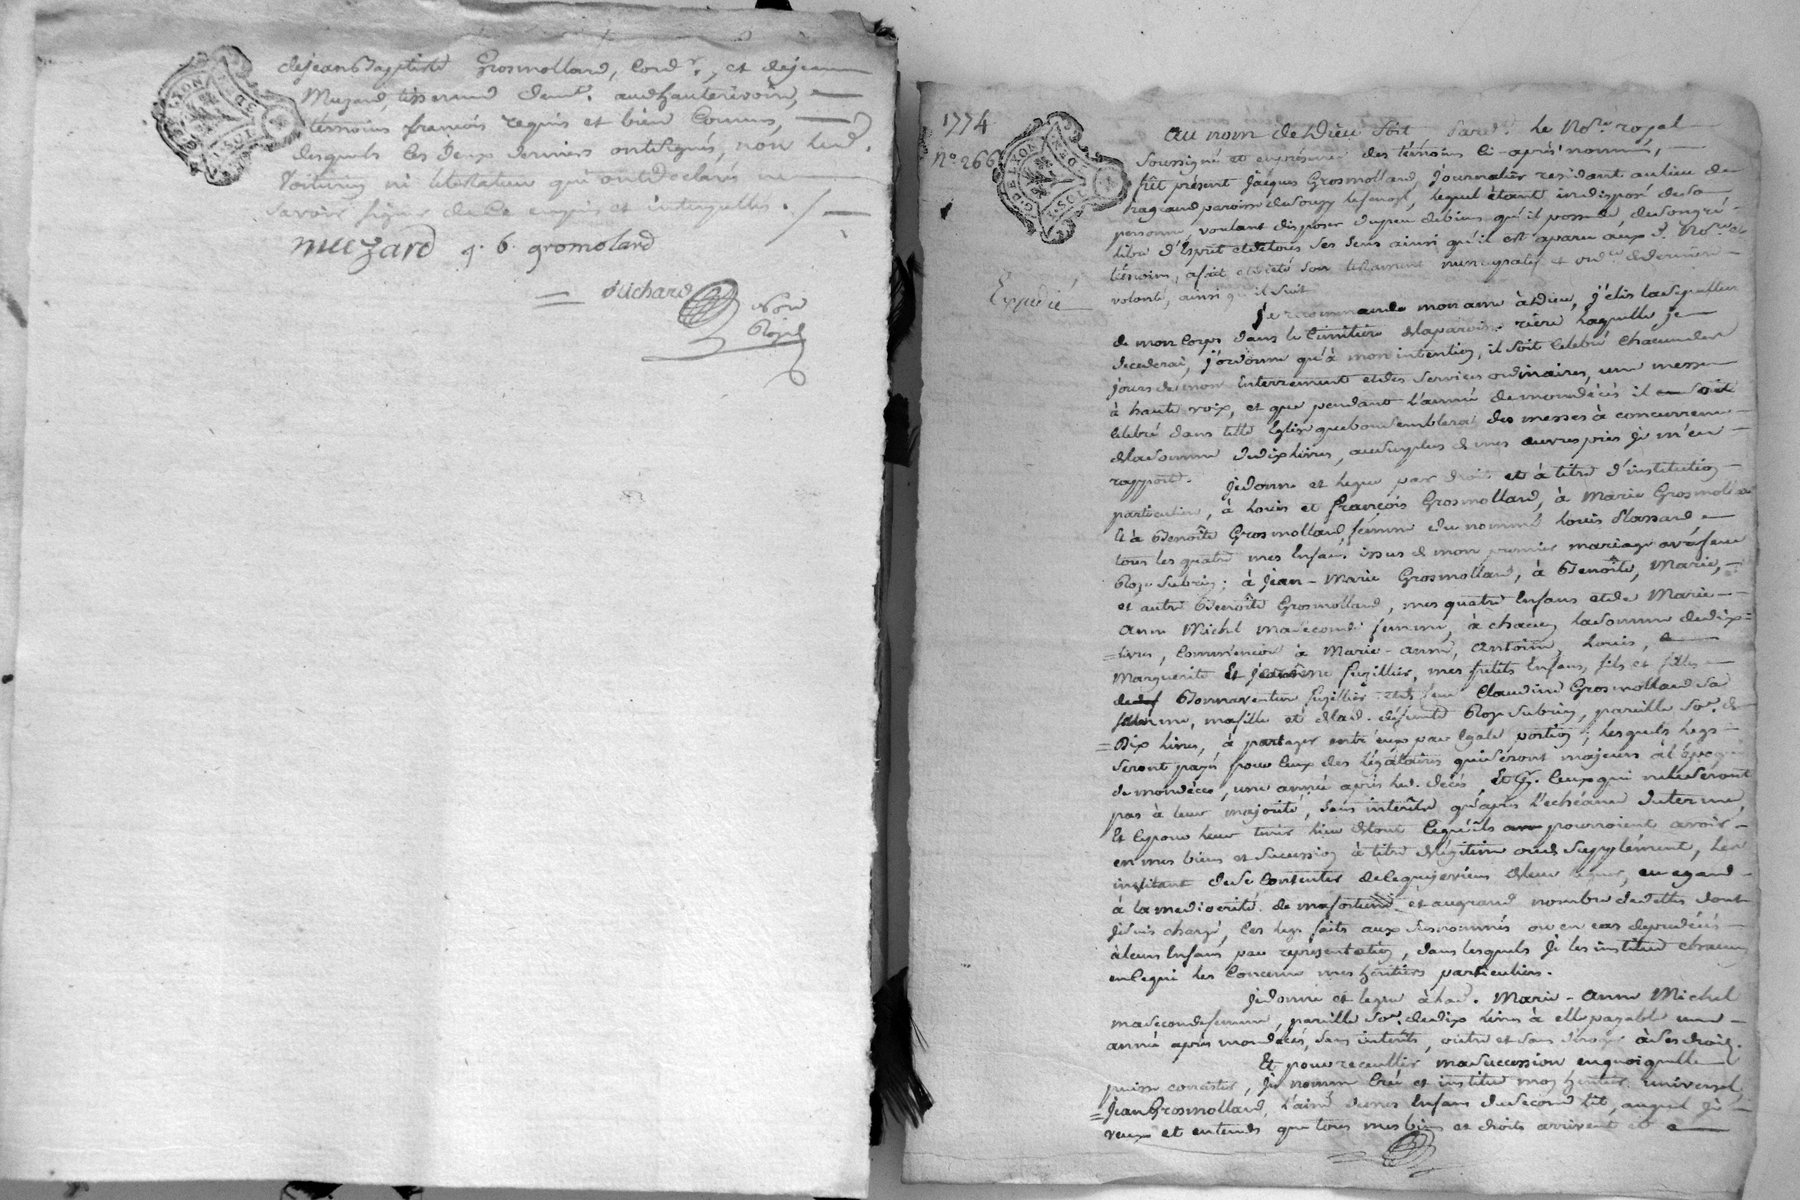 de jean Baptiste Grosmolland, Cord.r, et de jean
Muzard, tisserand dem.t aud hauterivoire,
témoins françois requis et bien Connus,
desquels les Deux derniers ont signés, non led.
Voiturier ni le testateur qui ont Declarés ne
savoir signer de Ce enquis et interpellés.
muzard j. b. gromolard
Nore
Royal
1774
No 266
G. DE LYON
DEN.
Expedié
au nom de Dieu Soit Pardt. le Nore. royal
Soussigné et en présence des témoins Ci-après nommés,
fût présent Jacques Grosmolland, Journalier residant au lieu de
paroisse de lequel étant indisposé de sa
personne, voulant disposer du peu de biens qu'il possede de son gré
libre d'Esprit et de tous ses sens ainsi qu'il est aparu aux d. Nore. et
témoins, a fait et dicté son testament nuncupatif et ord.re de derniere
volonté, ainsi qu'il suit
Je recommande mon ame à Dieu, j'élis la Sepulture
de mon Corps dans le Cimitière de la paroisse rière laquelle je
decederai, j'ordonne qu'à mon intention, il soit Célébré chacun des
jours de mon Enterrement et des Services ordinaires, une messe
à haute voix, et que pendant l'année de mon décés il soit
Celebré dans telle Eglise que bon semblera des messes à concurrence
de la somme de dix livres, au surplus de mes œuvres pies je m'en
rapporte. Je donne et legue par droit et à titre d'institution
particuliere, à Louis et françois Grosmolland, à Marie Grosmolland
et à Benoîte Grosmolland, femme du nommé Louis Plassard
tous les quatre mes Enfans issus de mon premier mariage avec feue
à Jean-Marie Grosmolland, à Benoîte, Marie,
et autre Benoîte Grosmolland, mes quatre Enfans et de Marie-
Anne Michel ma seconde femme, à chacun la somme de dix
livres, Comm'encore à Marie-anne, Antoine, Louis,
Marguerite Et jeanne mes petits Enfans, fils et filles
Bonnaventure et de feue Claudine Grosmolland sa
femme, ma fille et de lad. défunte pareille so.e de
Dix livres, à partager entr'eux par Egale portion; lesquels legs
seront payés pour Ceux des légataires qui seront majeurs à l'époque
de mon déces, une année après led. décés, Et p.r Ceux qui ne le seront
pas à leur majorité, sans intérêts qu'après l'echéance du terme,
Et Ce pour leur tenir lieu de tout Ce qu'ils pourroient avoir
en mes biens et Succession à titre de légitime ou de Supplément, les
invitant de se Contenter de Ce que je viens de leur leguer, eu egard
à la mediocrité de ma fortune et au grand nombre de dettes dont
je suis chargé, Ces legs faits aux susnommés ou en cas de prédécés
à leurs Enfans par représentation, dans lesquels je les institue chacun
en Ce qui les Concerne mes héritiers particuliers.
Je donne et legue à lad. Marie-Anne Michel
ma seconde femme, pareille so.e de dix livres à elle payable une
année après mon décés, sans intérêts, outre et sans déroger à ses droits.
Et pour recueillir ma succession en quoi qu'elle
puisse consister, je nomme Créé et institue mon héritier universel,
Jean Grosmolland, l'ainé de mes Enfans du second Lit, auquel je
veux et entends que tous mes biens et droits arrivent et